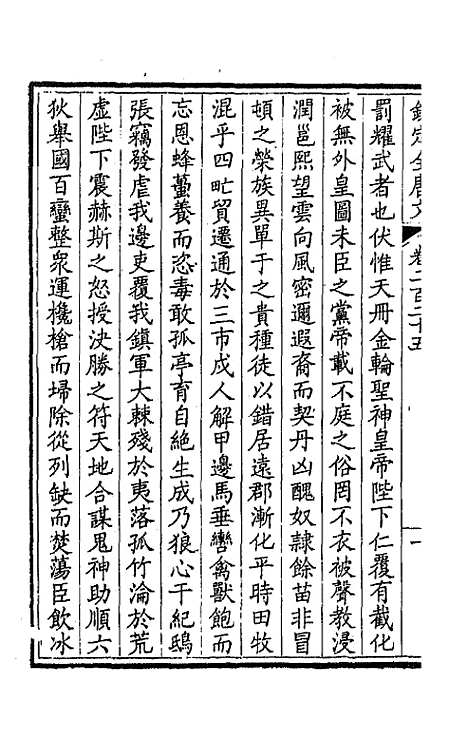 欽定全唐文　卷二百二十五　一
罰耀武者也伏惟天冊金輪聖神皇帝陛下仁覆有截化
被無外皇圖未臣之黨帝載不庭之俗罔不衣被聲教浸
潤邕熙望雲向風密邇遐裔而契丹凶醜奴隸餘苗非冒
頓之榮族異單于之貴種徒以錯居遠郡漸化平時田牧
混乎四甿貿遷通於三市戍人解甲邊馬垂轡禽獸飽而
忘恩蜂蠆養而恣毒敢孤亭育自絶生成乃狼心干紀鴟
張竊發虐我邊吏覆我鎮軍大棘殘於夷落孤竹淪於荒
虛陛下震赫斯之怒授決勝之符天地合謀鬼神助順六
狄舉國百蠻整衆運欃槍而埽除從列缺而焚蕩臣飲冰